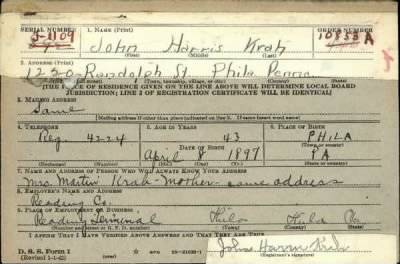 SERIAL NUMBER 1. NAME (Print) ORDER NUMBER
John Harris Krah 10853 A
2. ADDRESS (Print)
1220 Randolph St. Phila Penna
(THE PLACE OF RESIDENCE GIVEN ON THE LINE ABOVE WILL DETERMINE LOCAL BOARD
JURISDICTION; LINE 2 OF REGISTRATION CERTIFICATE WILL BE IDENTICAL)
3. MAILING ADDRESS
Same
[Mailing address if other than place indicated on line 2. If same insert word same]
4. TELEPHONE 5. AGE IN YEARS 6. PLACE OF BIRTH
4224 43 PHILA
DATE OF BIRTH
April 8 1897 PA
7. NAME AND ADDRESS OF PERSON WHO WILL ALWAYS KNOW YOUR ADDRESS
Mrs. Martin Krah - Mother - same address
8. EMPLOYER'S NAME AND ADDRESS
Reading Co.
9. PLACE OF EMPLOYMENT OR BUSINESS
Reading Terminal Phila Phila Pa
I AFFIRM THAT I HAVE VERIFIED ABOVE ANSWERS AND THAT THEY ARE TRUE.
D. S. S. Form 1
(Revised 1-1-42) John Harris Krah
(Registrant's signature)